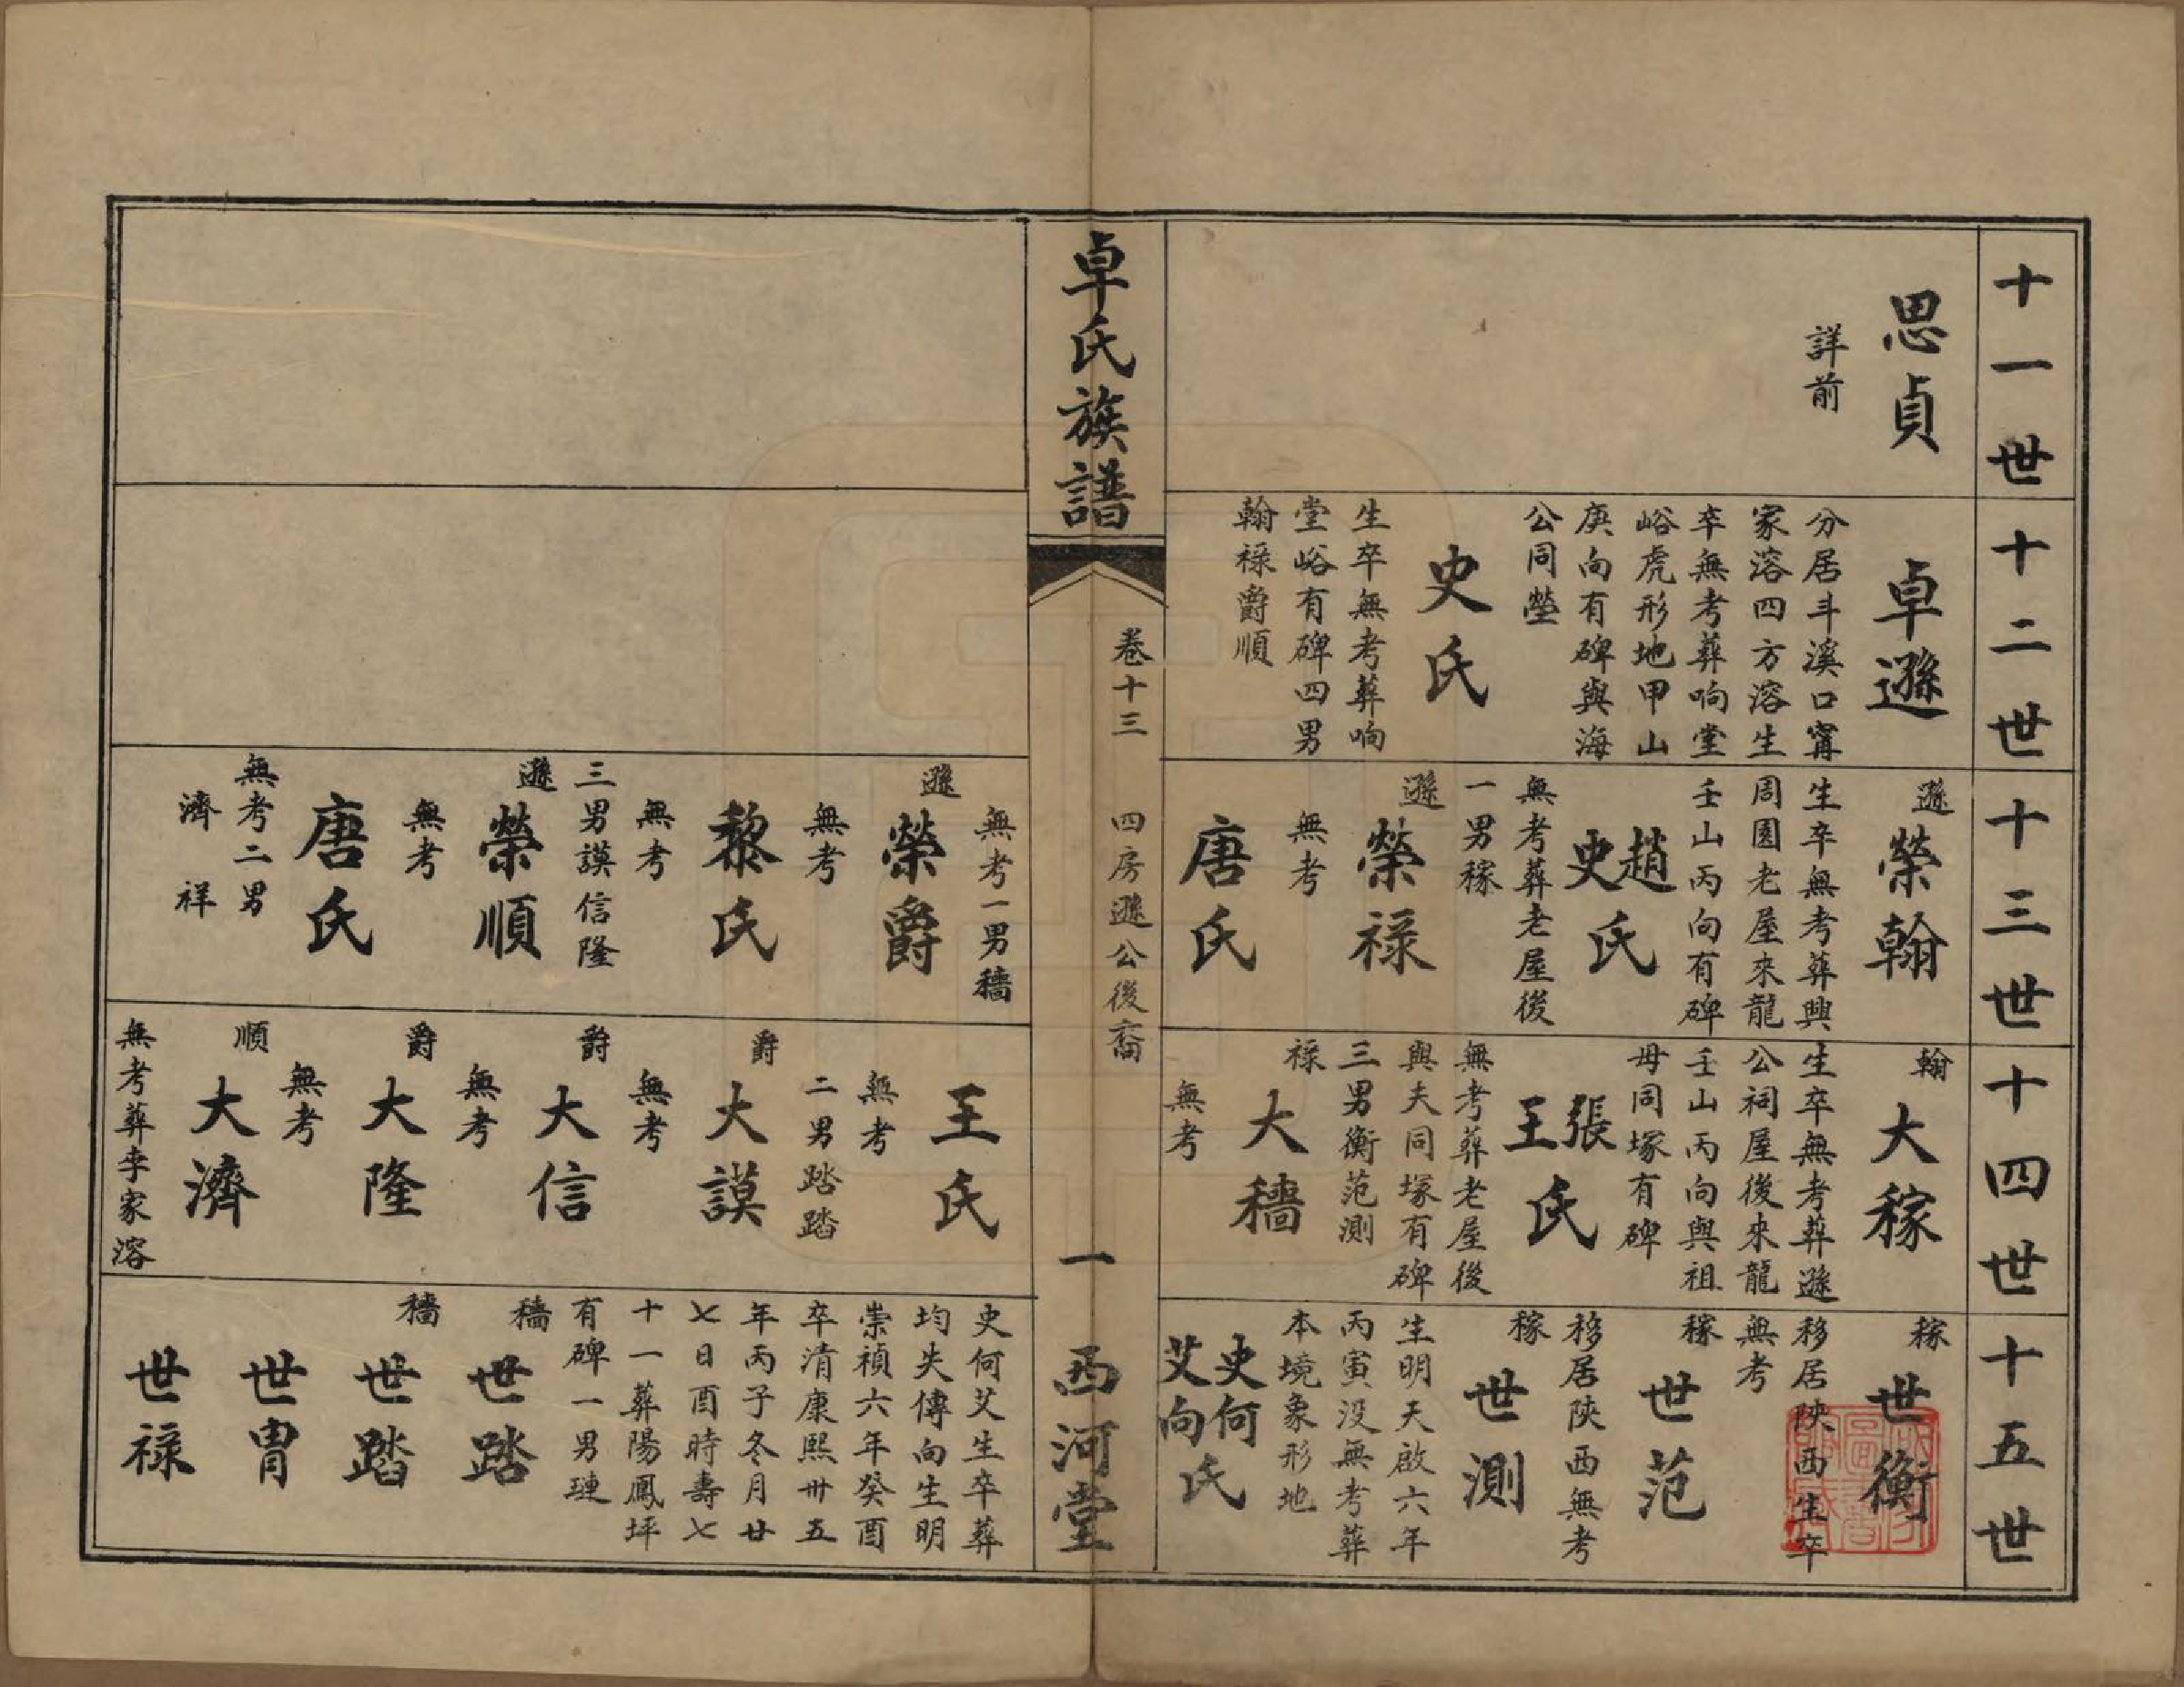 十一世
思貞
詳前
十二世
卓遜
分居斗溪口甯
家溶四方溶生
卒無考葬响堂
峪虎形地甲山
庚向有碑與海
公同塋
史氏
生卒無考葬响
堂峪有碑四男
翰祿爵順
十三世
遜
榮翰
生卒無考葬興
周園老屋來龍
壬山丙向有碑
趙
史
氏
無考葬老屋後
一男稼
遜
榮祿
無考
唐氏
十四世
翰
大稼
生卒無考葬遜
公祠屋後來龍
壬山丙向與祖
母同塚有碑
張
王
氏
無考葬老屋後
與夫同塚有碑
三男衡范測
祿
大穡
無考
十五世
稼
世衡
移居陝西生卒
無考
稼
世范
移居陝西無考
稼
世測
生明天啟六年
丙寅没無考葬
本境象形地
史何
艾向
氏
卓氏族譜
卷十三
四房遜公後裔
一
西河堂
無考一男穡
遜
榮爵
無考
黎氏
無考
三男謨信隆
遜
榮順
無考
唐氏
無考二男
濟祥
王氏
無考
二男踏踏
爵
大謨
無考
爵
大信
無考
爵
大隆
無考
順
大濟
無考葬李家溶
史何艾生卒葬
均失傳向生明
崇禎六年癸酉
卒清康熙卅五
年丙子冬月廿
七日酉時壽七
十一葬陽鳳坪
有碑一男璉
穡
世踏
穡
世踏
世冑
世祿